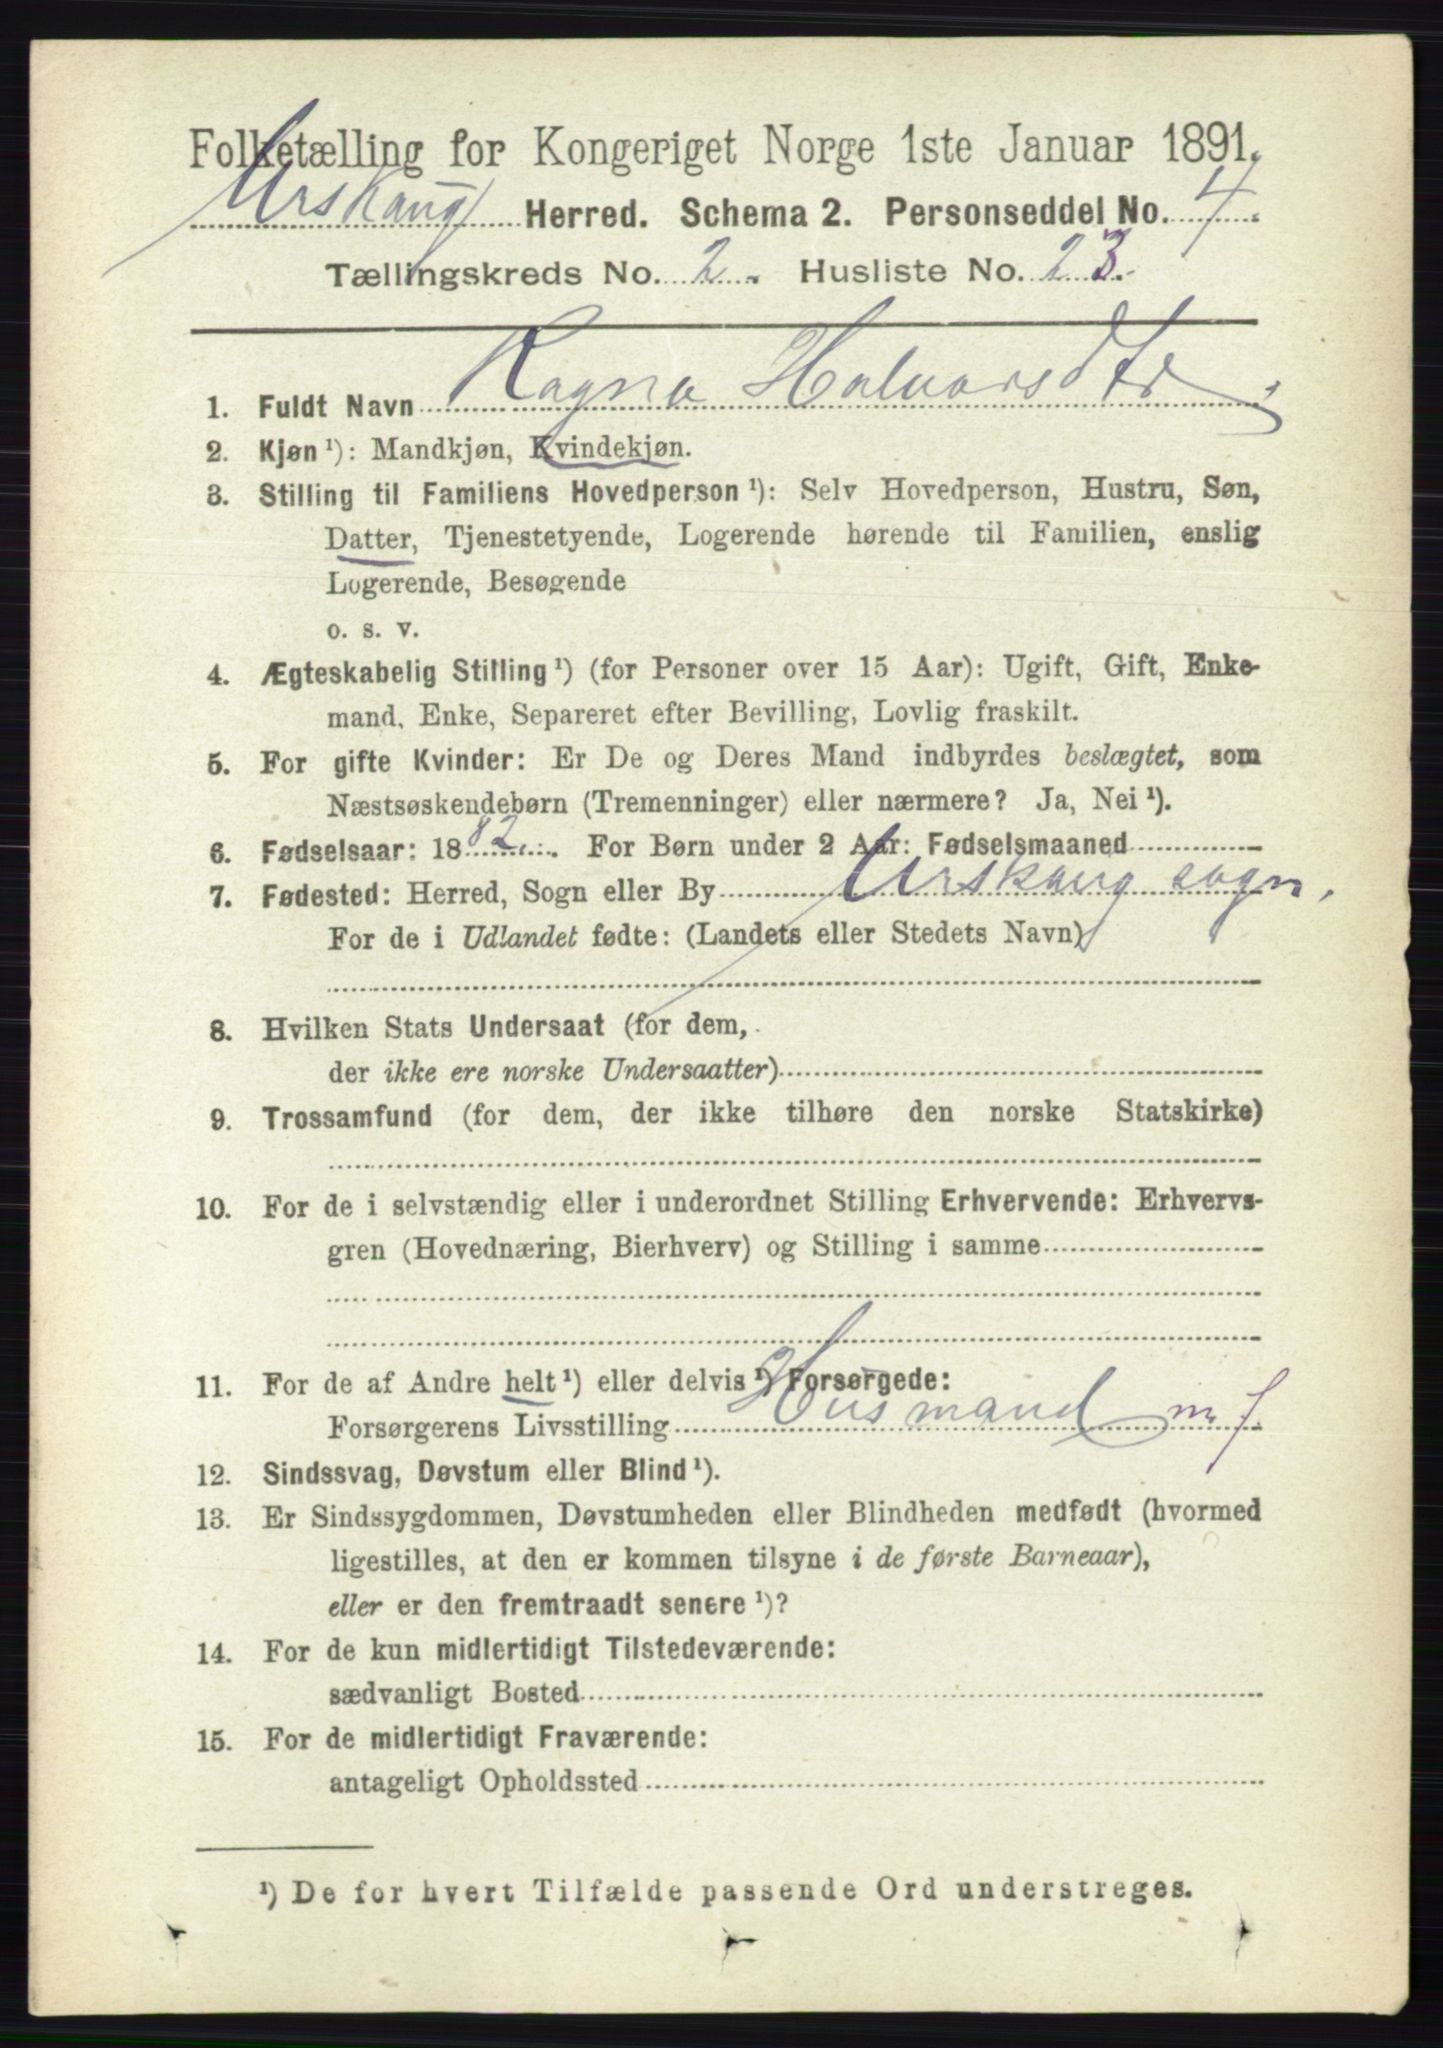 Folketælling for Kongeriget Norge 1ste Januar 1891.
Urskaug Herred. Schema 2. Personseddel No. 4.
Tællingskreds No. 2. Husliste No. 23.
1. Fuldt Navn Ragna Halvorsdtr.
2. Kjøn ¹): Mandkjøn, Kvindekjøn.
3. Stilling til Familiens Hovedperson ¹): Selv Hovedperson, Hustru, Søn,
Datter, Tjenestetyende, Logerende hørende til Familien, enslig
Logerende, Besøgende
o. s. v.
4. Ægteskabelig Stilling ¹) (for Personer over 15 Aar): Ugift, Gift, Enke-
mand, Enke, Separeret efter Bevilling, Lovlig fraskilt.
5. For gifte Kvinder: Er De og Deres Mand indbyrdes beslægtet, som
Næstsøskendebørn (Tremenninger) eller nærmere? Ja, Nei ¹).
6. Fødselsaar: 1882. For Børn under 2 Aar: Fødselsmaaned
7. Fødested: Herred, Sogn eller By Urskaug sogn.
For de i Udlandet fødte: (Landets eller Stedets Navn)
8. Hvilken Stats Undersaat (for dem,
der ikke ere norske Undersaatter)
9. Trossamfund (for dem, der ikke tilhøre den norske Statskirke)
10. For de i selvstændig eller i underordnet Stilling Erhvervende: Erhvervs-
gren (Hovednæring, Bierhverv) og Stilling i samme
11. For de af Andre helt ¹) eller delvis ¹) Forsørgede:
Forsørgerens Livsstilling Husmand m. J
12. Sindssvag, Døvstum eller Blind ¹).
13. Er Sindssygdommen, Døvstumheden eller Blindheden medfødt (hvormed
ligestilles, at den er kommen tilsyne i de første Barneaar),
eller er den fremtraadt senere ¹)?
14. For de kun midlertidigt Tilstedeværende:
sædvanligt Bosted
15. For de midlertidigt Fraværende:
antageligt Opholdssted
¹) De for hvert Tilfælde passende Ord understreges.